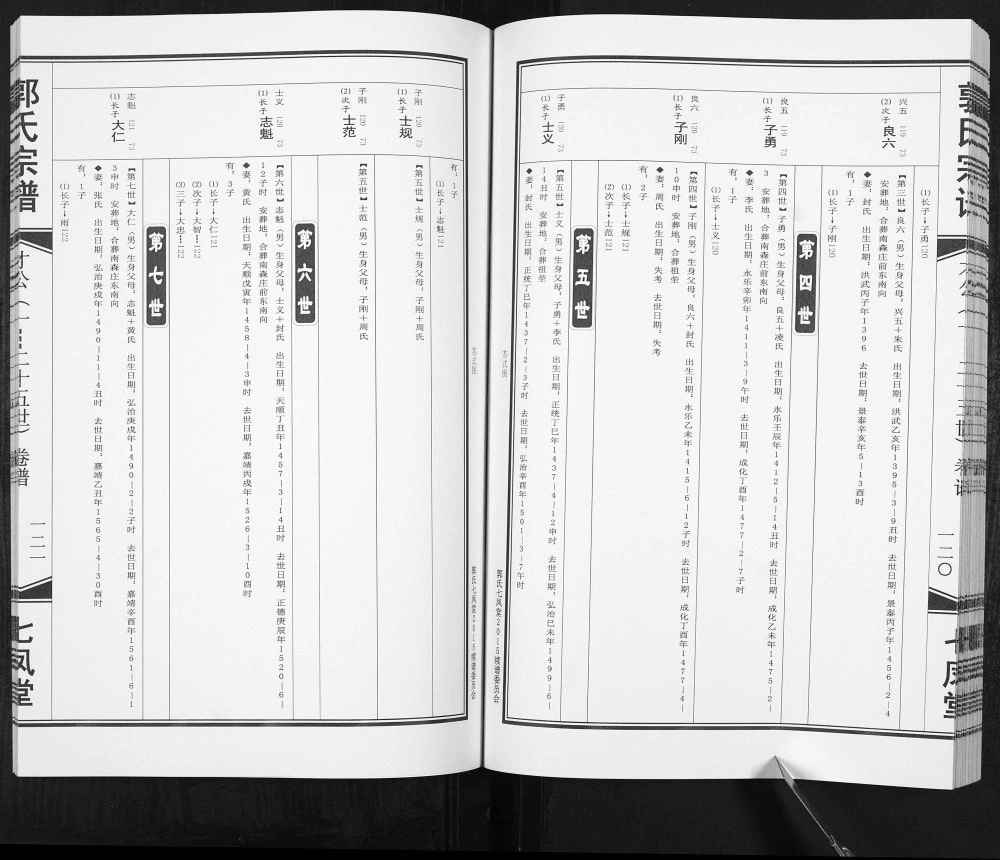 ⑴长子→子勇120
兴五 119 73
⑵次子 良六
【第三世】良六（男）生身父母，兴五＋朱氏 出生日期，洪武乙亥年1395－3－9丑时 去世日期：景泰丙子年1456－2－4
安葬地：合葬南森庄前东南向
◆妻，封氏 出生日期，洪武丙子年1396 去世日期：景泰辛亥年5－13酉时
有，1子
⑴长子→子刚120
第四世
良五 119 73
⑴长子 子勇
【第四世】子勇（男）生身父母，良五＋凌氏 出生日期，永乐壬辰年1412－5－14丑时 去世日期：成化乙未年1475－2－
3 安葬地：合葬南森庄前东南向
◆妻，李氏 出生日期，永乐辛卯年1411－3－9午时 去世日期，成化丁酉年1477－2－7子时
有，1子
⑴长子→士义120
良六 120 73
⑴长子 子刚
【第四世】子刚（男）生身父母，良六＋封氏 出生日期：永乐乙未年1415－6－12子时 去世日期：成化丁酉年1477－4－
10申时 安葬地：祖茔
◆妻：周氏 出生日期：失考 去世日期：失考
有，2子
⑴长子→士规121
⑵次子→士范121
第五世
子勇 120 73
⑴长子 士义
【第五世】士义（男）生身父母：子勇＋李氏 出生日期，正统丁巳年1437－4－12申时 去世日期：弘治己未年1499－6－
14丑时 安葬地，合葬祖茔
◆妻，封氏 出生日期：正统丁巳年1437－2－3子时 去世日期，弘治辛酉年1501－3－7午时
苏式图
郭氏七凤堂2015续谱委员会
一二〇
苏式图
郭氏七凤堂2015续谱委员会
有：1子
⑴长子→志魁121
子刚 120 73
⑴长子 士规
【第五世】士规（男）生身父母，子刚＋周氏
子刚 120 73
⑵次子 士范
【第五世】士范（男）生身父母，子刚＋周氏
第六世
士义 120 73
⑴长子 志魁
【第六世】志魁（男）生身父母，士义＋封氏 出生日期，天顺丁丑年1457－3－14丑时 去世日期：正德庚辰年1520－6－
12子时 安葬地，合葬南森庄前东南向
◆妻，黄氏 出生日期：天顺戊寅年1458－4－3申时 去世日期，嘉靖丙戌年1526－3－10酉时
有，3子
⑴长子→大仁121
⑵次子→大智…122
⑶三子→大忠…122
第七世
志魁 121 73
⑴长子 大仁
【第七世】大仁（男）生身父母，志魁＋黄氏 出生日期，弘治庚戌年1490－2－2子时 去世日期：嘉靖辛酉年1561－6－1
3申时 安葬地：合葬南森庄前东南向
◆妻，张氏 出生日期，弘治庚戌年1490－11－4丑时 去世日期：嘉靖乙丑年1565－4－30酉时
有，1子
⑴长子→雨122
郭氏宗谱
卷谱
一二一
七凤堂